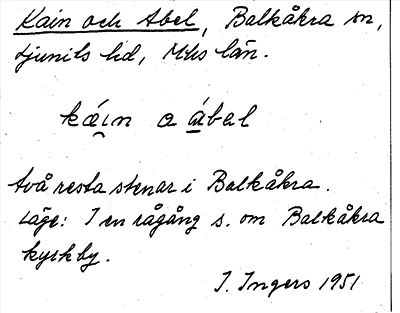 Kain och Abel, Balkåkra sn,
Ljunits hd, Mhs län.
káin o ábal
två resta stenar i Balkåkra.
Läge: I en rågång s. om Balkåkra
kyrkby.
I. Ingers 1951